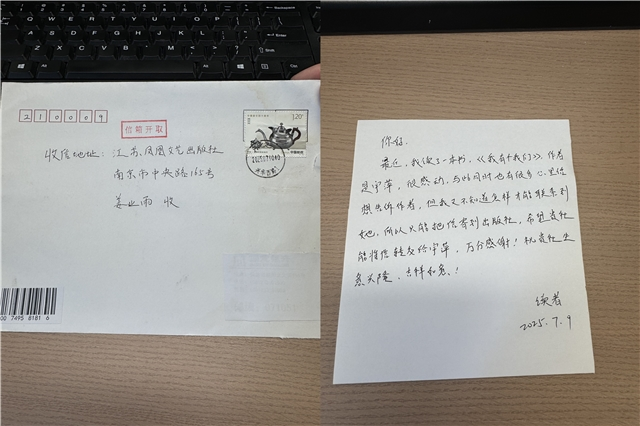 210009
信箱开取
1.20元
收信地址：江苏凤凰文艺出版社
南京市中央路165号
姜业雨 收
00 7495 8181 6
你好：
最近，我读了一本书，《我有个我们》作者
是宇草，很感动，与此同时也有很多心里话
想告诉作者，但我又不知道怎样才能联系到
她，所以只能把信寄到出版社，希望贵社
能将信转交给宇草，万分感谢！祝贵社生
意兴隆、吉祥如意！
读者
2025.7.9